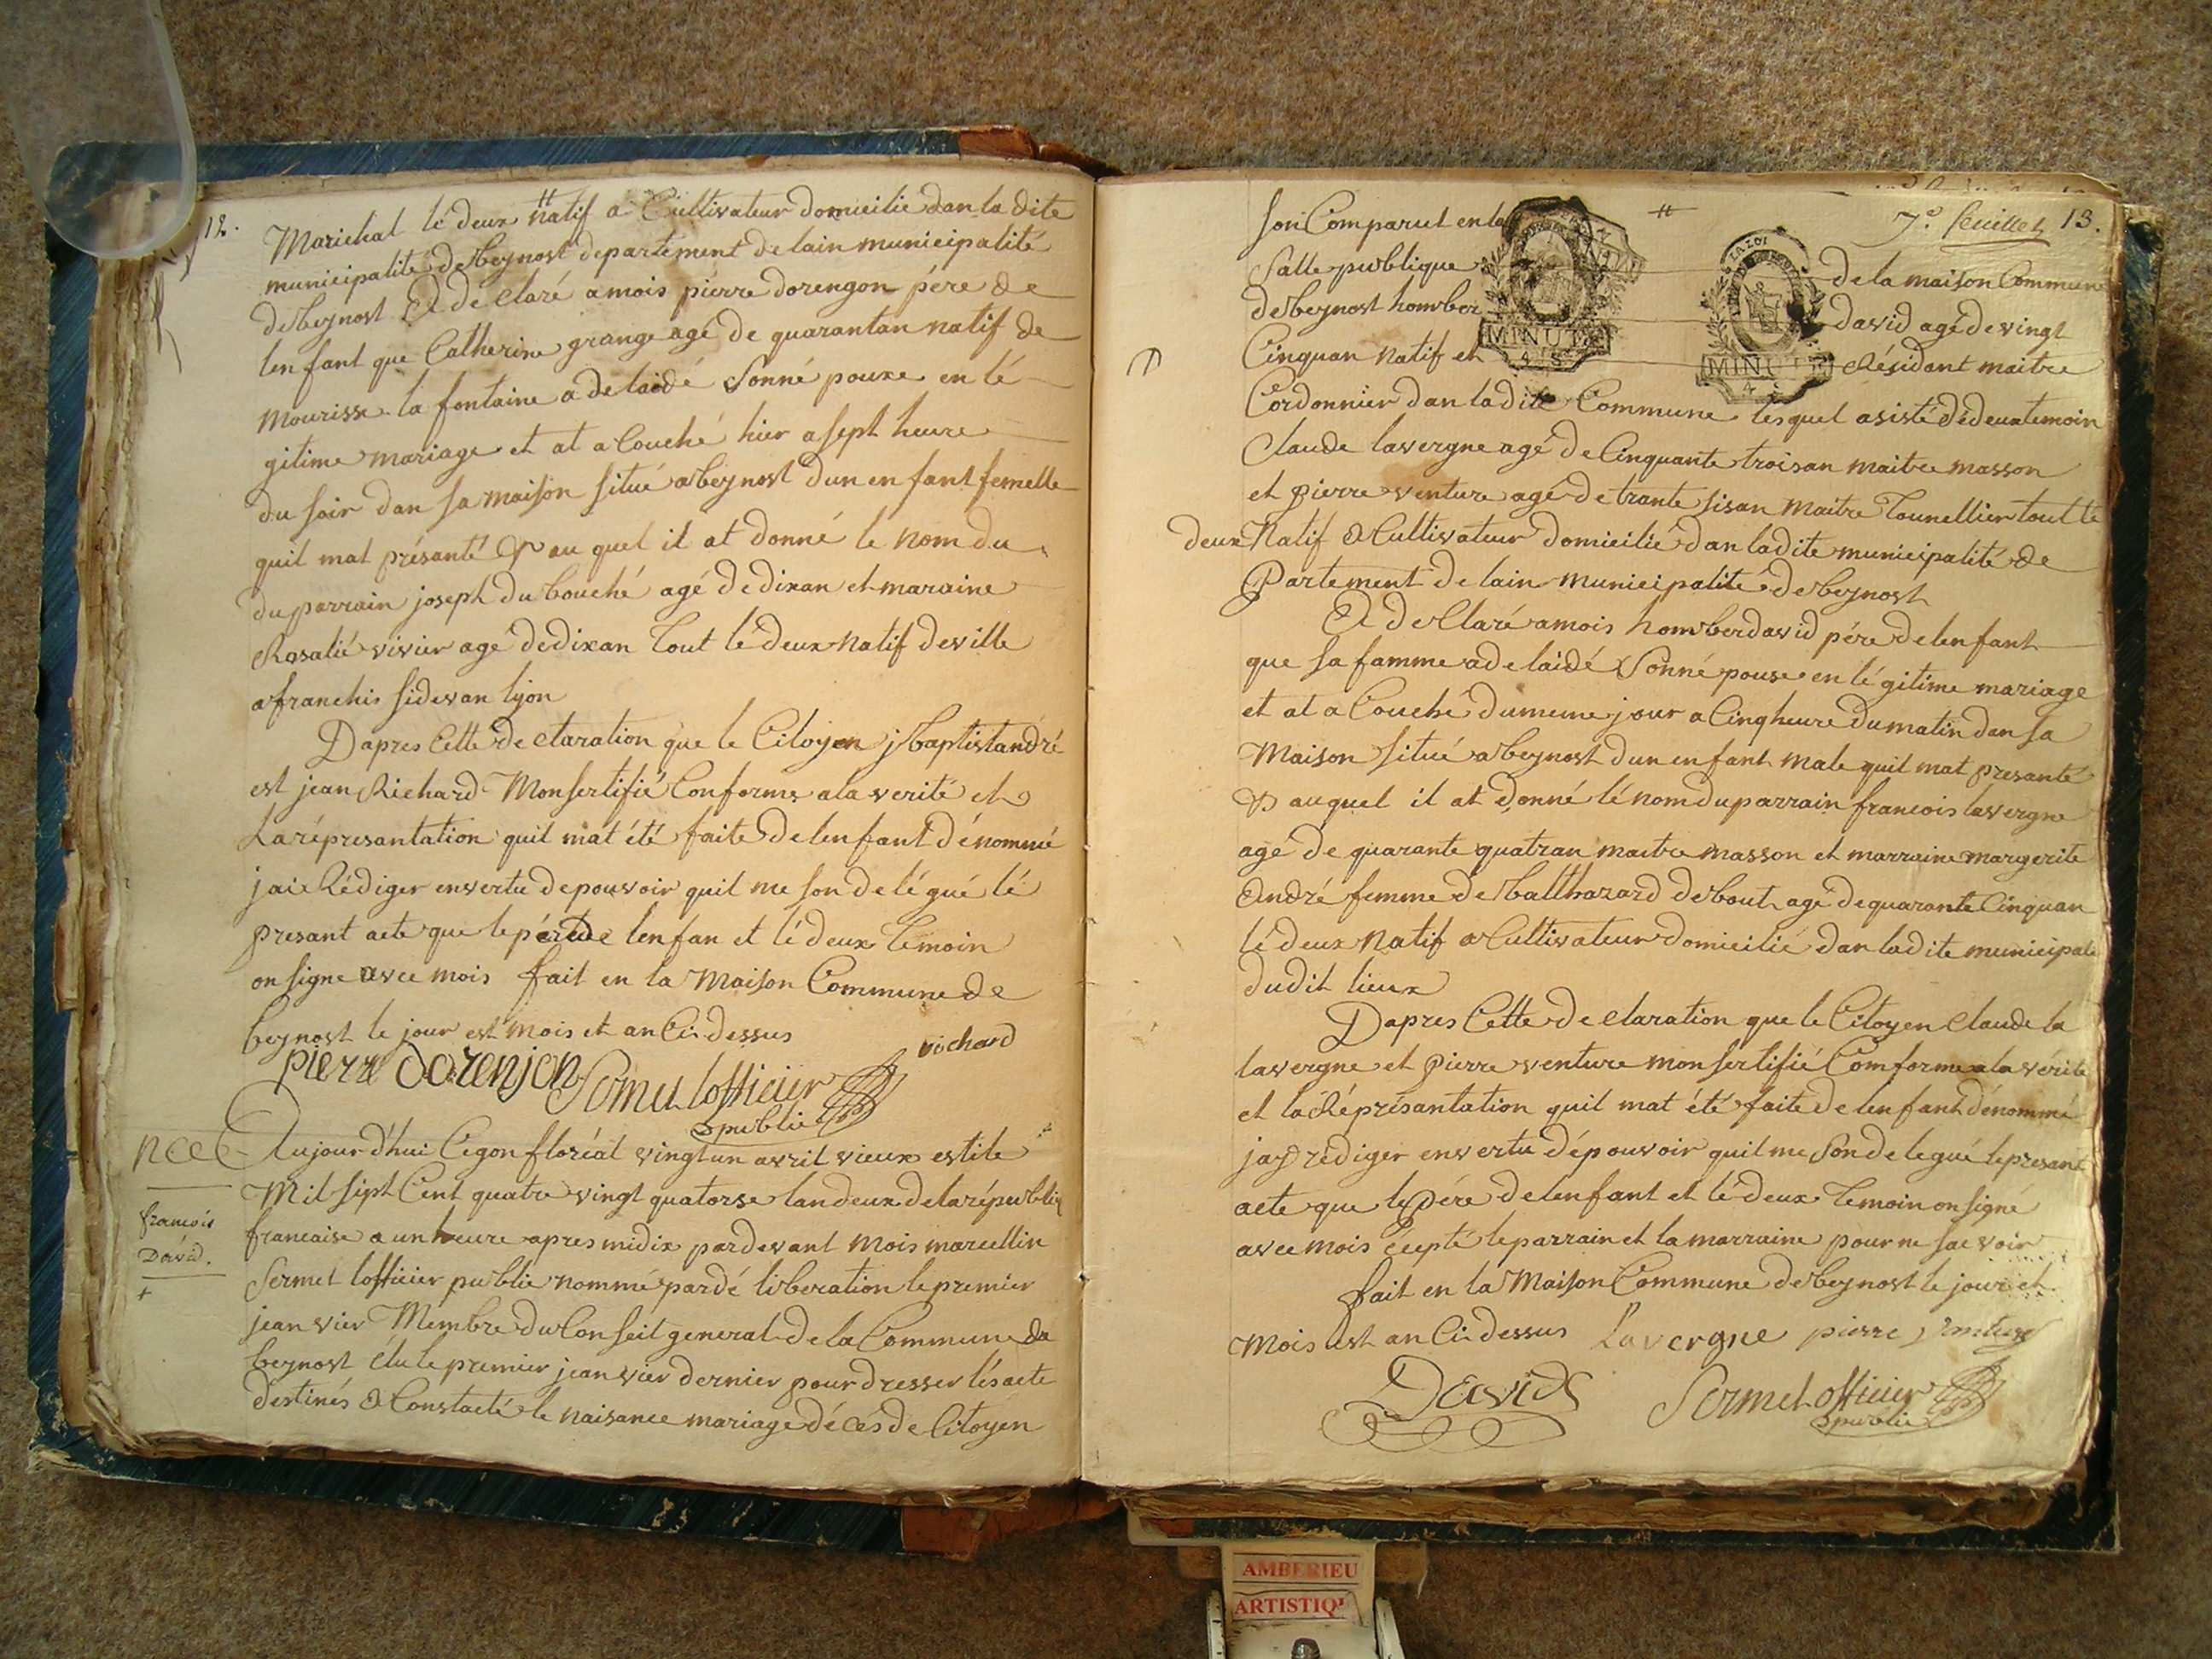 12.
Marichal lé deux natif a Cultivateur domicilié dan la dite
municipalité de beynost departement de lain municipalité
de beynost A de Claré a mois pierre dorengon pére de
len fant que Catherine grange agé de quarantan natif de
mourisse la fontaine a de laidé Sonné pouxe en lé
gitime mariage et at a Couché hier a sept heure
du soir dan sa maison situé a beynost dun en fant femelle
quil mat présanté & au quel il at donné le nom du
du parrain joseph du bouché agé de dixan et maraine
Rosalié vivier age de dixan tout lé deux natif de ville
a franchis sidevan lyon
Dapres Cette de claration que le Citoyen j baptist andré
est jean Richard Mon sertifié Conforme a la verité et
La réprésantation quil mat été faite de lenfant dénommé
jai Rédiger en vertu de pouvoir quil me son de légué lé
presant acte que le pére de lenfan et lé deux temoin
on signe avec mois fait en la Maison Commune de
beynost le jour est mois et an Ci dessus
richard
pierre dorenjon Sermet lofficier
publie
nce
Aujourd'hui Cegon floréal vingt un avril vieux estile
Mil sept Cent quatre vingt quatorse lan deux de la républi
francois
David.
+
francaise a un heure apres midix par devant Mois marcellin
Sermet lofficier publie nommé par dé liberation le premier
jean vier Membre du Con seil general de la Commune da
beynost élu le premier jean vier dernier pour dresser lés acte
destinés & Constacté le naisance mariage décés de Citoyen
7e. feuillet 13.
son Comparut en la
Salle publique de la maison Commune
de beynost homber david agé de vingt
Cinquan natif et Résidant maitre
MINUTE
4 S
MINUTE
4 S
Cordonnier dan la dite Commune lesquel asisté dé deux temoin
Claude lavergne agé de Cinquante troisan maitre masson
et pierre venture agé de trante sisan maitre tounellier tout lé
deux Natif & Cultivateur domicilié dan ladite municipalité de
Partement de lain municipalité de beynost
A de Claré a mois homber david pére de lenfant
que sa famme a de laidé Sonné pouse en lé gitime mariage
et at a Couché du meme jour a Cinq heure du matin dan sa
Maison situé a beynost dun en fant male quil mat presanté
& au quel il at donné lé nom du parrain francois lavergne
agé de quarante quatran maitre masson et marraine margerite
André femme de balthazard debout agé de quarante Cinquan
lé deux natif a Cultivateur domicilié dan la dite municipale
dudit lieux
Dapres Cette de claration que le Citoyen Claude la
lavergne et pierre venture mon sertifié Comforme a la vérité
et la Réprésantation quil mat été faite de lenfant dénommé
jay rédiger en vertu dé pouvoir quil me Son de legué le presant
acte que le pére de lenfant et lé deux temoin on signé
avec mois éxepté le parrain et la marraine pour ne sac voir
fait en la Maison Commune de beynost le jour et
mois est an Ci dessus Lavergne pierre venture
David Sermet officier
publie
AMBERIEU
ARTISTIQ